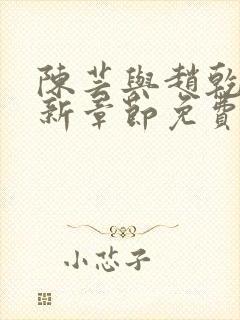 陳芸與趙乾
新章節免費
小恣子